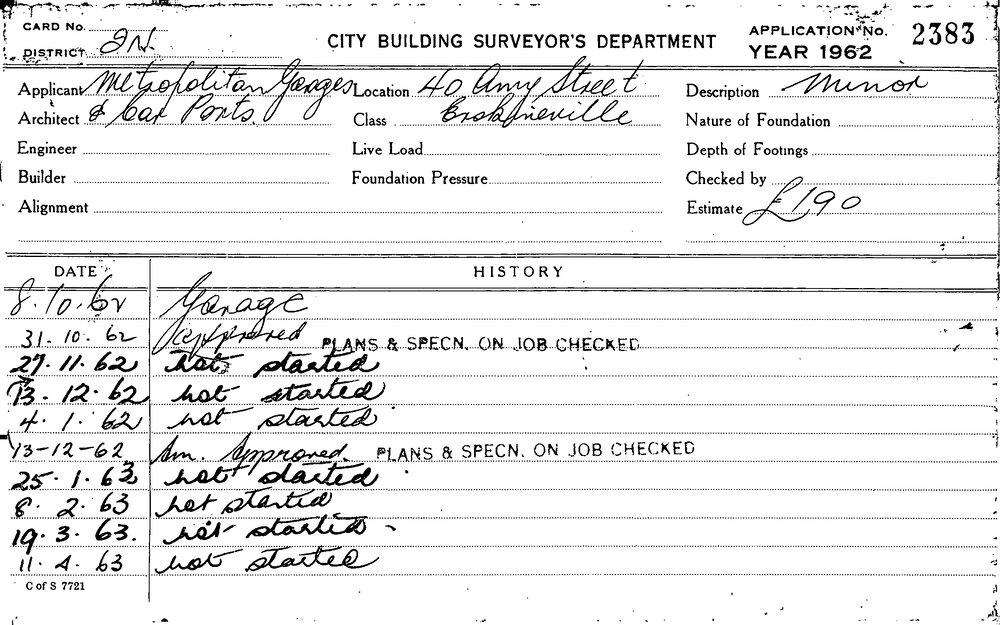 CARD No.
DISTRICT 2N.
CITY BUILDING SURVEYOR'S DEPARTMENT
APPLICATION No. 2383
YEAR 1962
Applicant Metropolitan Garages Location 40 Amy Street Description Minor
Architect & Car Ports. Class Erskineville Nature of Foundation
Engineer Live Load Depth of Footings
Builder Foundation Pressure Checked by
Alignment Estimate £190
DATE HISTORY
8.10.62 Garage
31.10.62 Approved PLANS & SPECN. ON JOB CHECKED
27.11.62 not started
13.12.62 not started
4.1.62 not started
13-12-62 Am. Approved. PLANS & SPECN. ON JOB CHECKED
25.1.63 not started
8.2.63 not started
19.3.63. not started
11.4.63 not started
C of S 7721